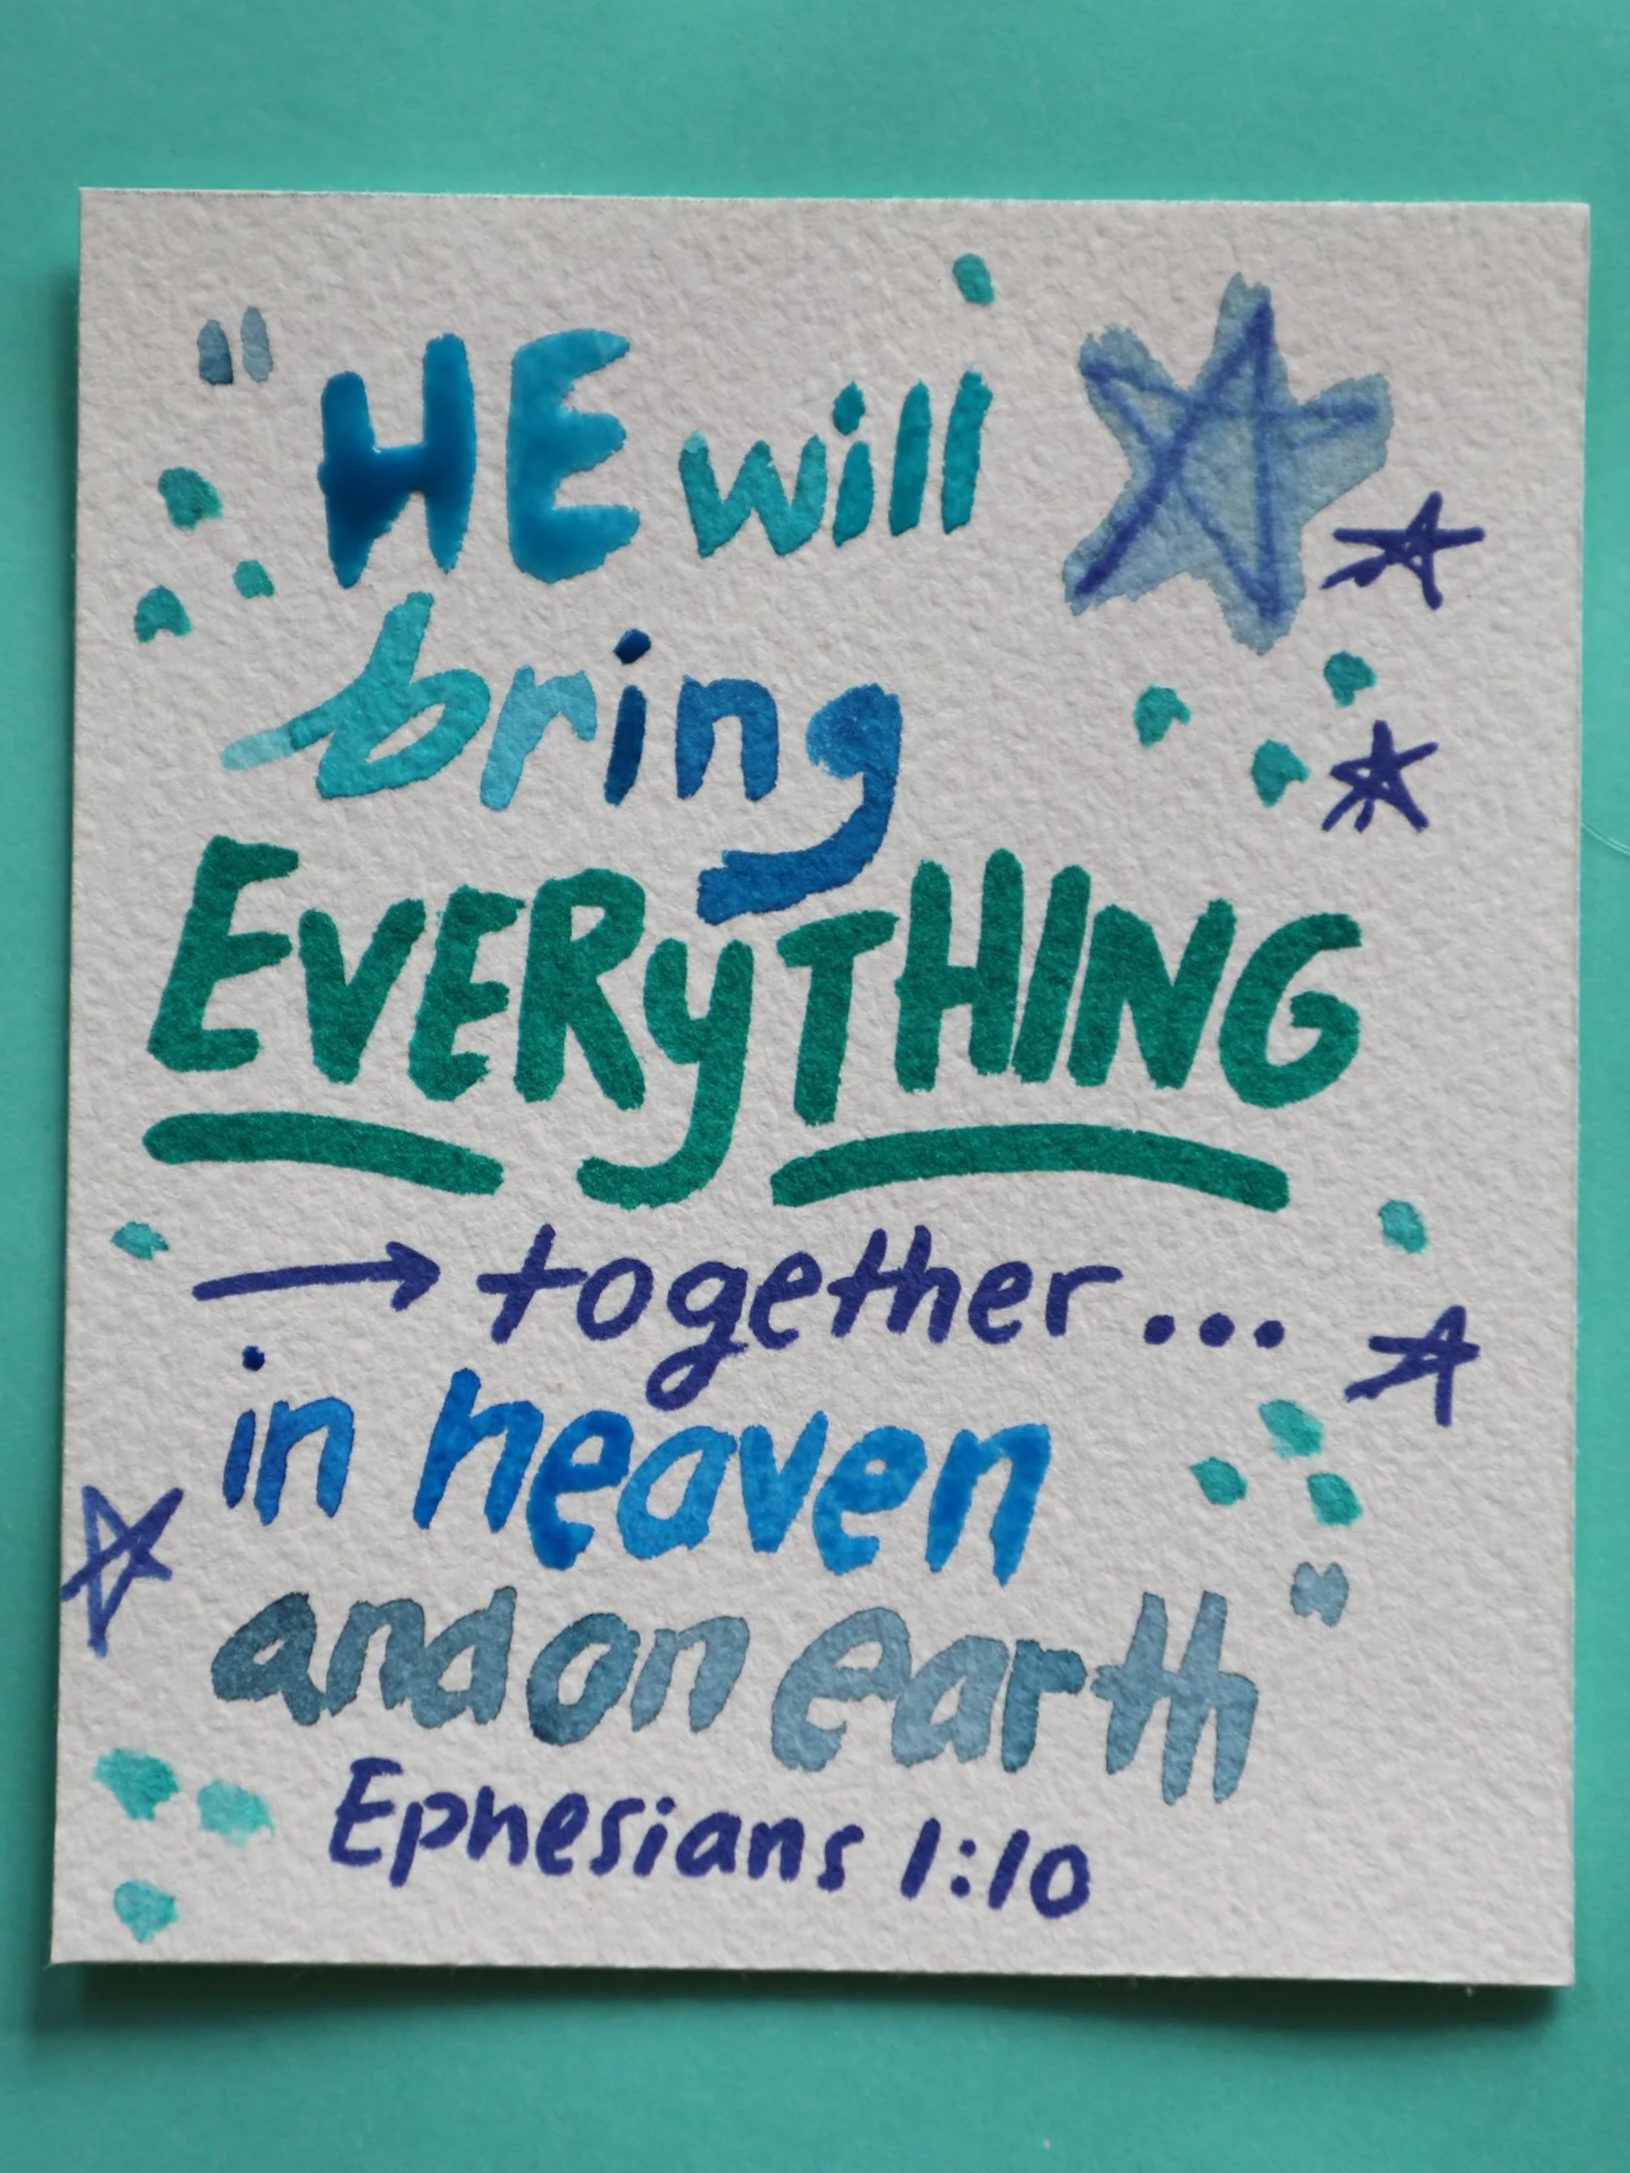 "HE will
bring
EVERyTHING
→ together...
in heaven
and on earth"
Ephesians 1:10